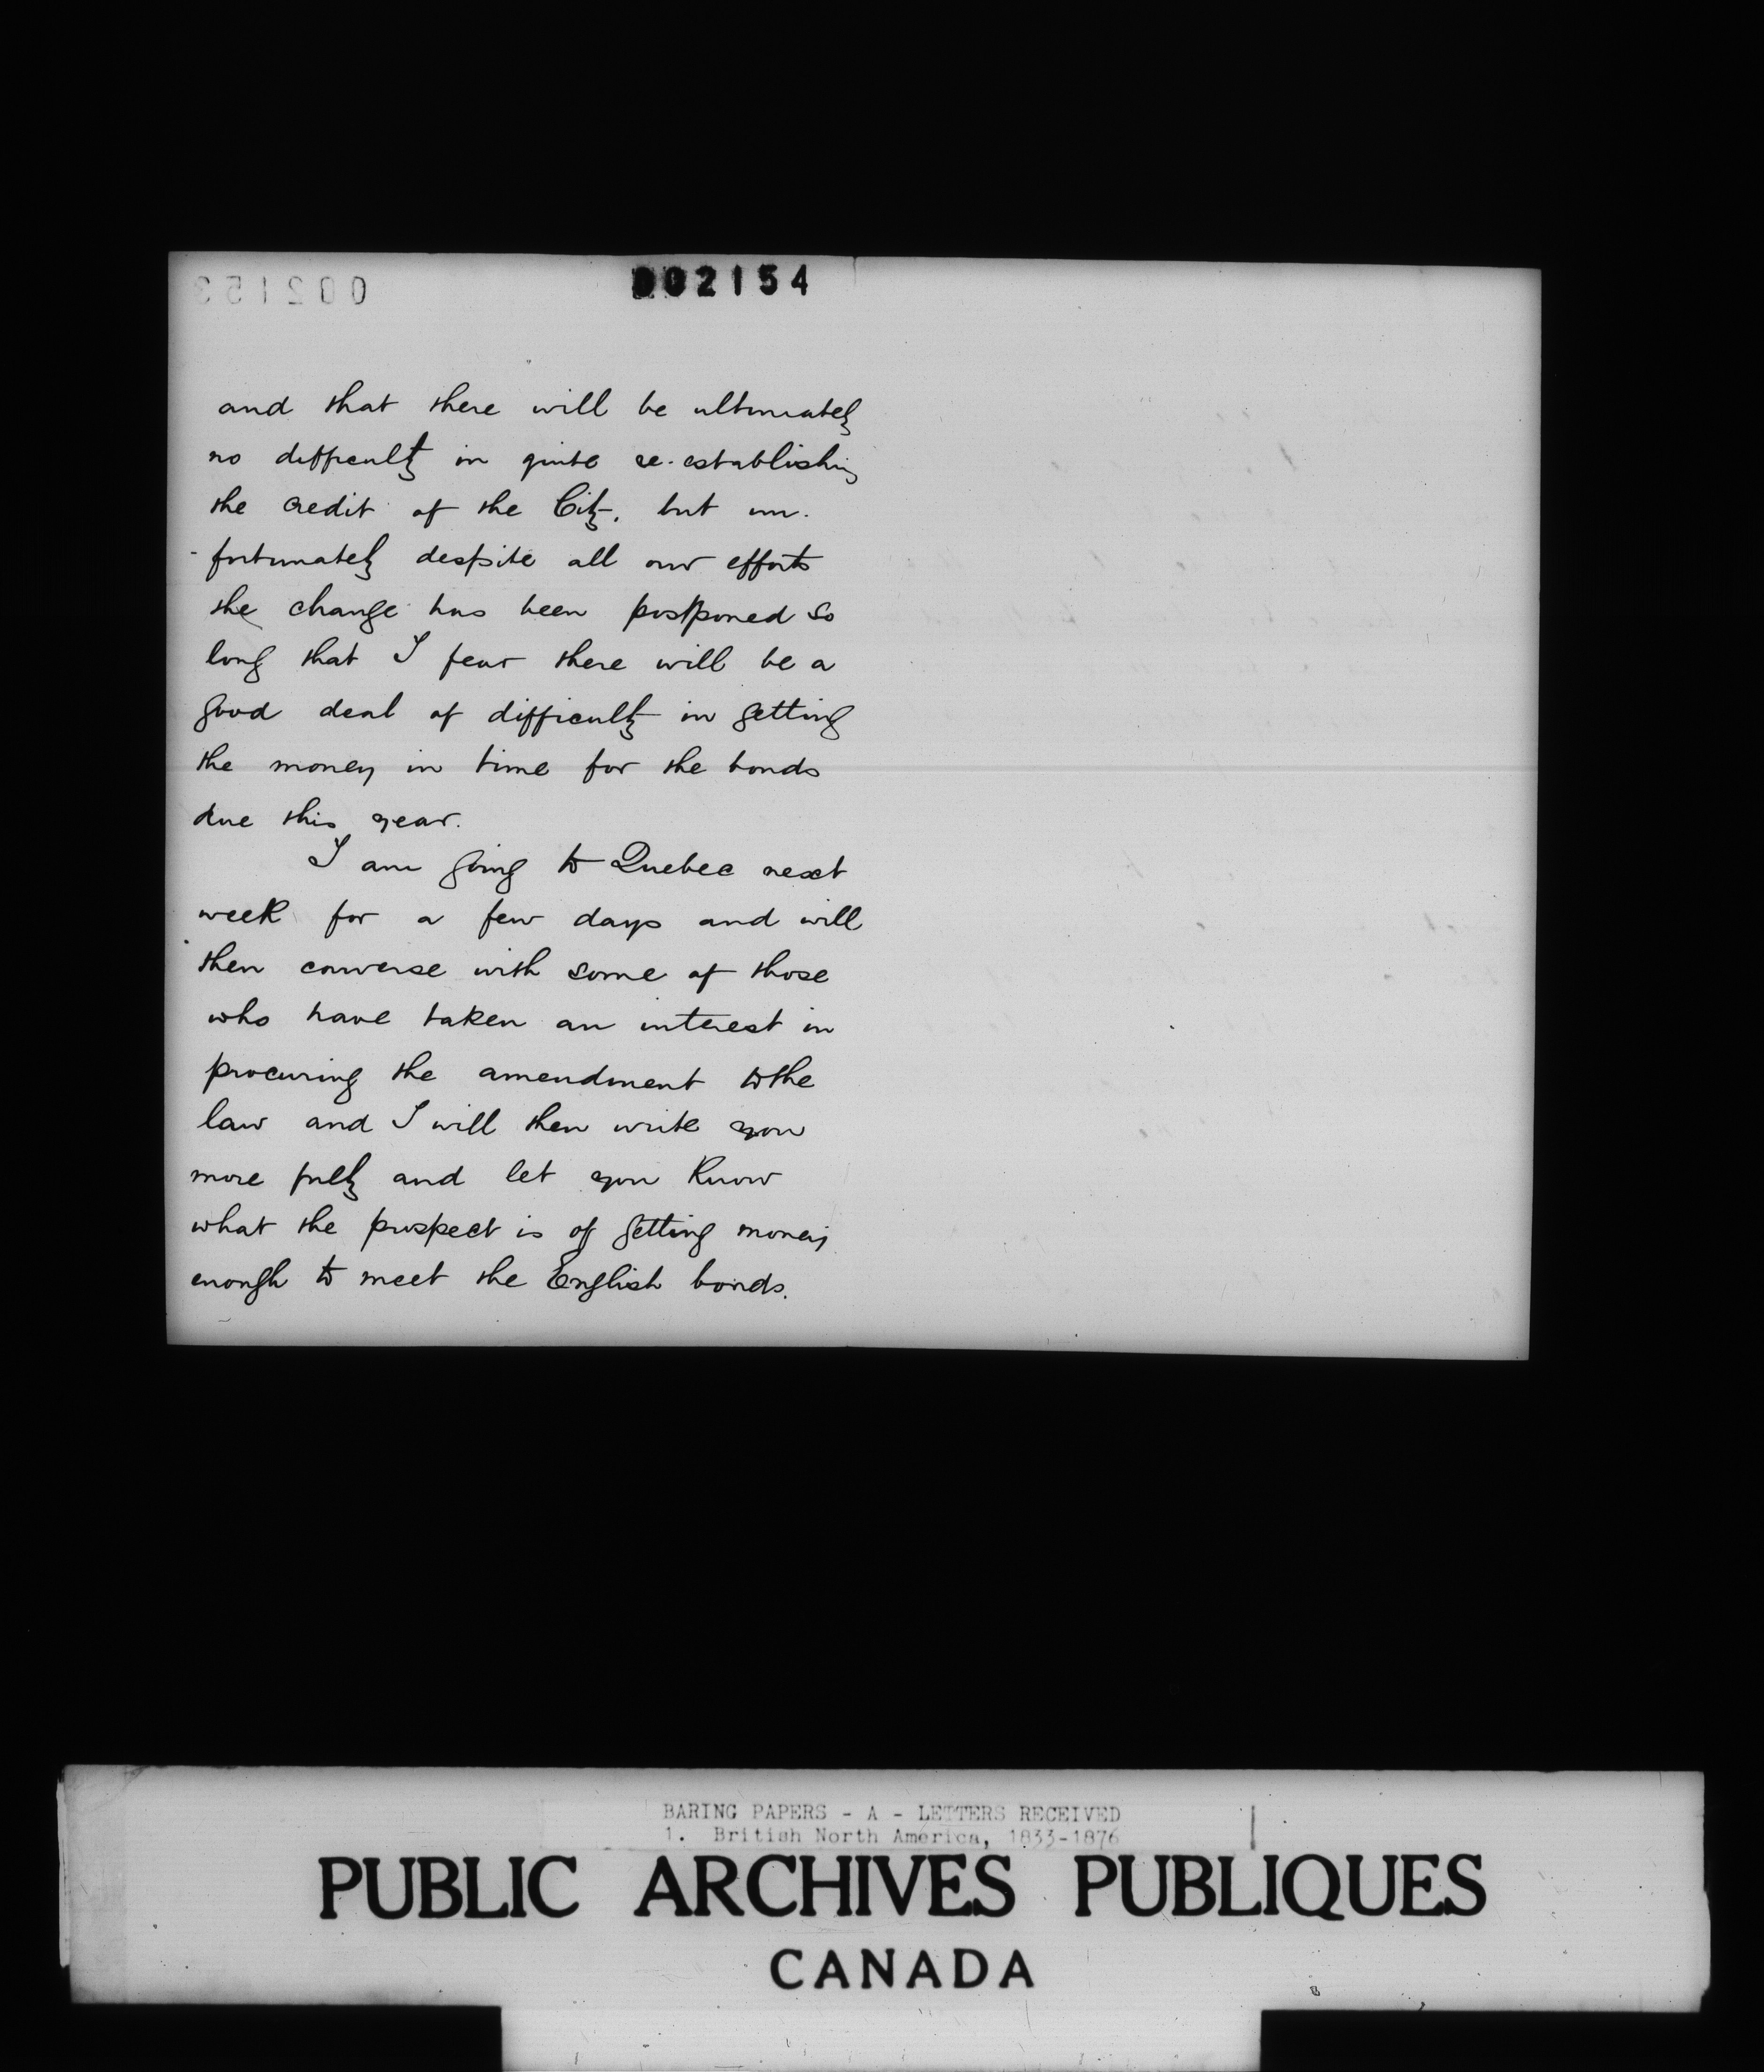 002153
002154
and that there will be ultimately
no difficulty in quite re-establishing
the credit of the City, but un-
-fortunately despite all our efforts
the change has been postponed so
long that I fear there will be a
good deal of difficulty in getting
the money in time for the bonds
due this year.
I am going to Quebec next
week for a few days and will
then converse with some of those
who have taken an interest in
procuring the amendment to the
law and I will then write you
more fully and let you know
what the prospect is of getting money
enough to meet the English bonds.
BARING PAPERS - A - LETTERS RECEIVED
1. British North America, 1833-1876
PUBLIC ARCHIVES PUBLIQUES
CANADA